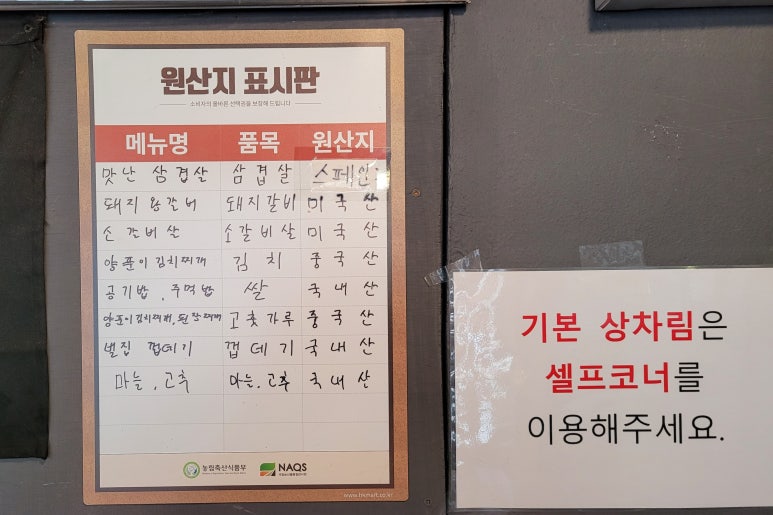 원산지 표시판
소비자의 올바른 선택권을 보장해 드립니다
메뉴명 품목 원산지
맛난 삼겹살 삼겹살 스페인
돼지왕갈비 돼지갈비 미국산
소갈비살 소갈비살 미국산
양푼이김치찌개 김치 중국산
공기밥, 주먹밥 쌀 국내산
양푼이김치찌개, 된장찌개 고춧가루 중국산
벌집 껍데기 껍데기 국내산
마늘, 고추 마늘, 고추 국내산
농림축산식품부 NAQS
기본 상차림은
셀프코너를
이용해주세요.